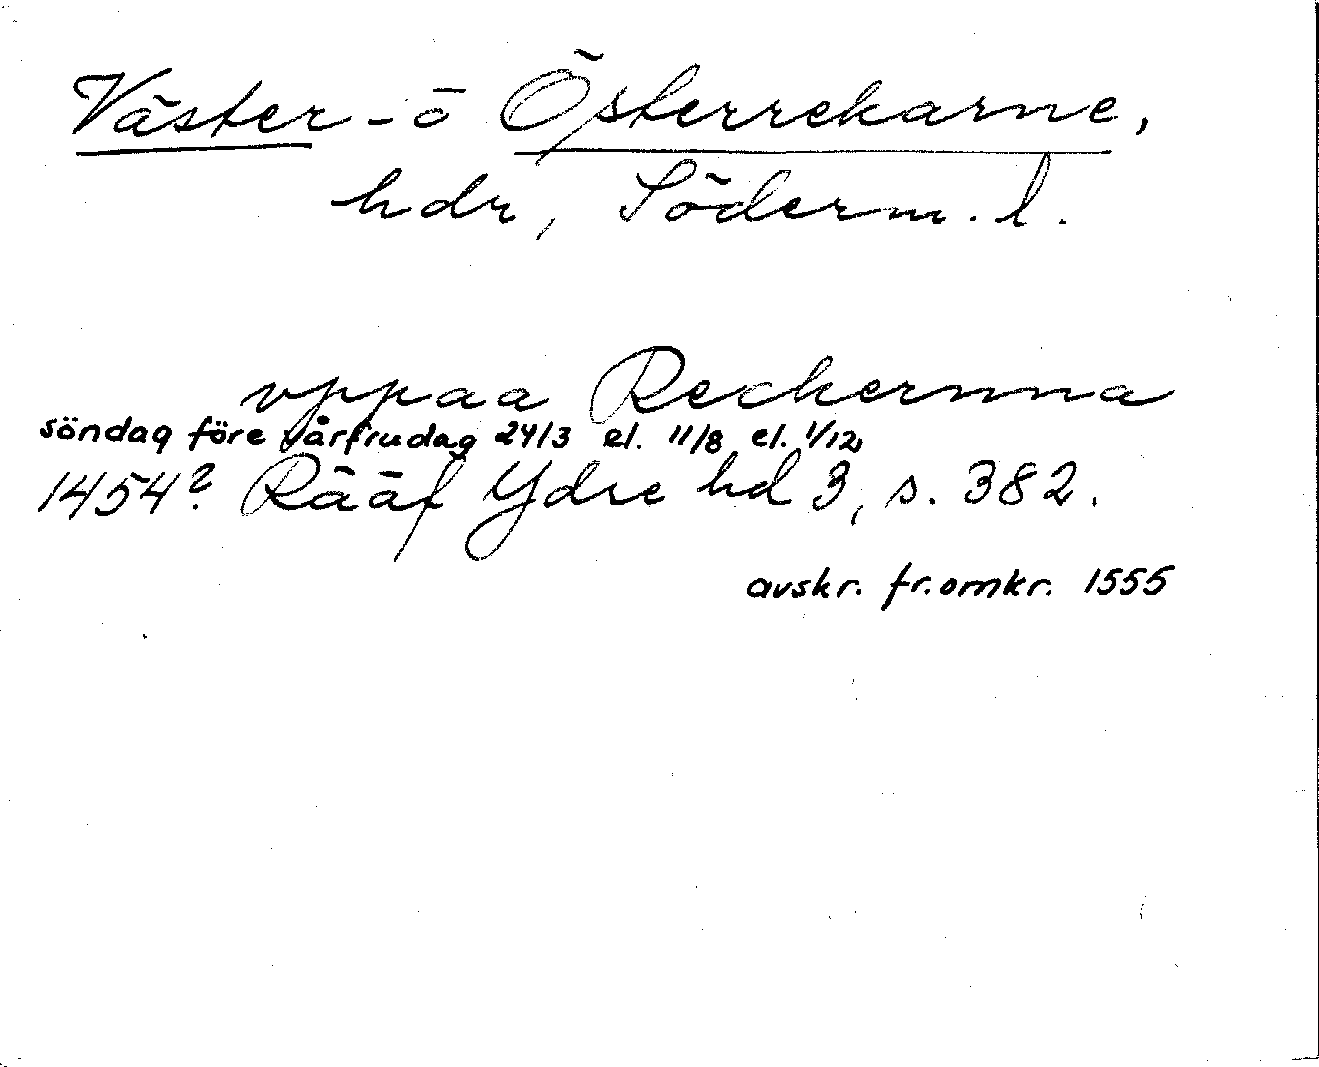 Väster- o Österrekarne,
hdr, Söderm. l.
vppaa Reckernna
söndag före vårfrudag 24/3 el. 11/8 el. 1/12,
1454? Rääf Ydre hd 3, s. 382.
avskr. fr. omkr. 1555